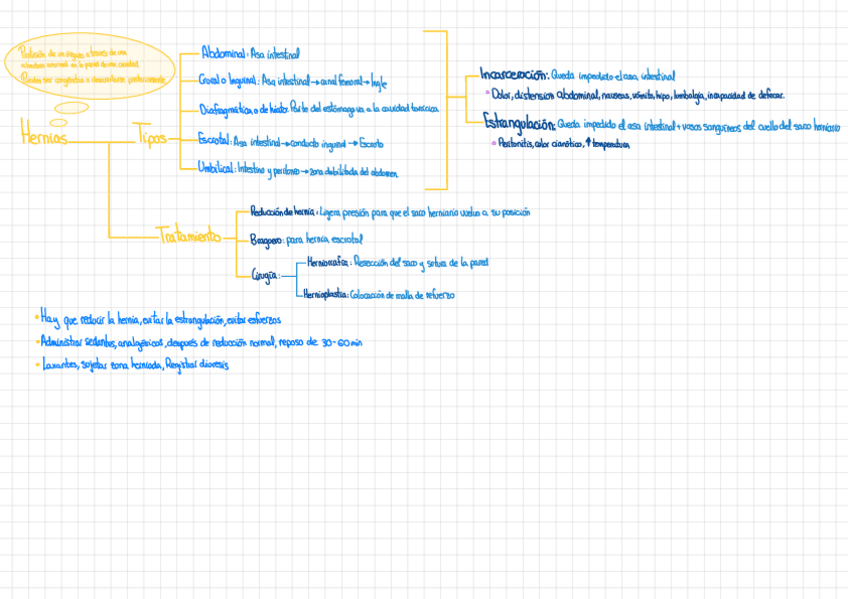 Protusión de un órgano a través de una
abertura anormal en la pared de una cavidad.
Pueden ser congénitas o desarrollarse posteriormente.
Hernias
Tipos
Abdominal: Asa intestinal
Crural o Inguinal: Asa intestinal → canal femoral → Ingle
Diafragmática o de hiato: Parte del estómago va a la cavidad torácica.
Escrotal: Asa intestinal → conducto inguinal → Escroto
Umbilical: Intestino y peritoneo → zona debilitada del abdomen.
Incarceración: Queda impedido el asa intestinal
• Dolor, distension abdominal, nauseas, vómito, hipo, lumbalgia, incapacidad de defecar.
Estrangulación: Queda impedido el asa intestinal + vasos sanguíneos del cuello del saco herniario
• Peritonitis, color cianótico, ↑ temperatura
Tratamiento
Reducción de hernia: Ligera presión para que el saco herniario vuelva a su posición
Braguero: para hernia escrotal
Cirugía:
Herniorrafia: Resección del saco y sutura de la pared
Hernioplastia: Colocación de malla de refuerzo
• Hay que reducir la hernia, evitar la estrangulación, evitar esfuerzos
• Administrar sedantes, analgésicos, después de reducción normal, reposo de 30-60 min
• Laxantes, sujetar zona herniada, Registrar diuresis